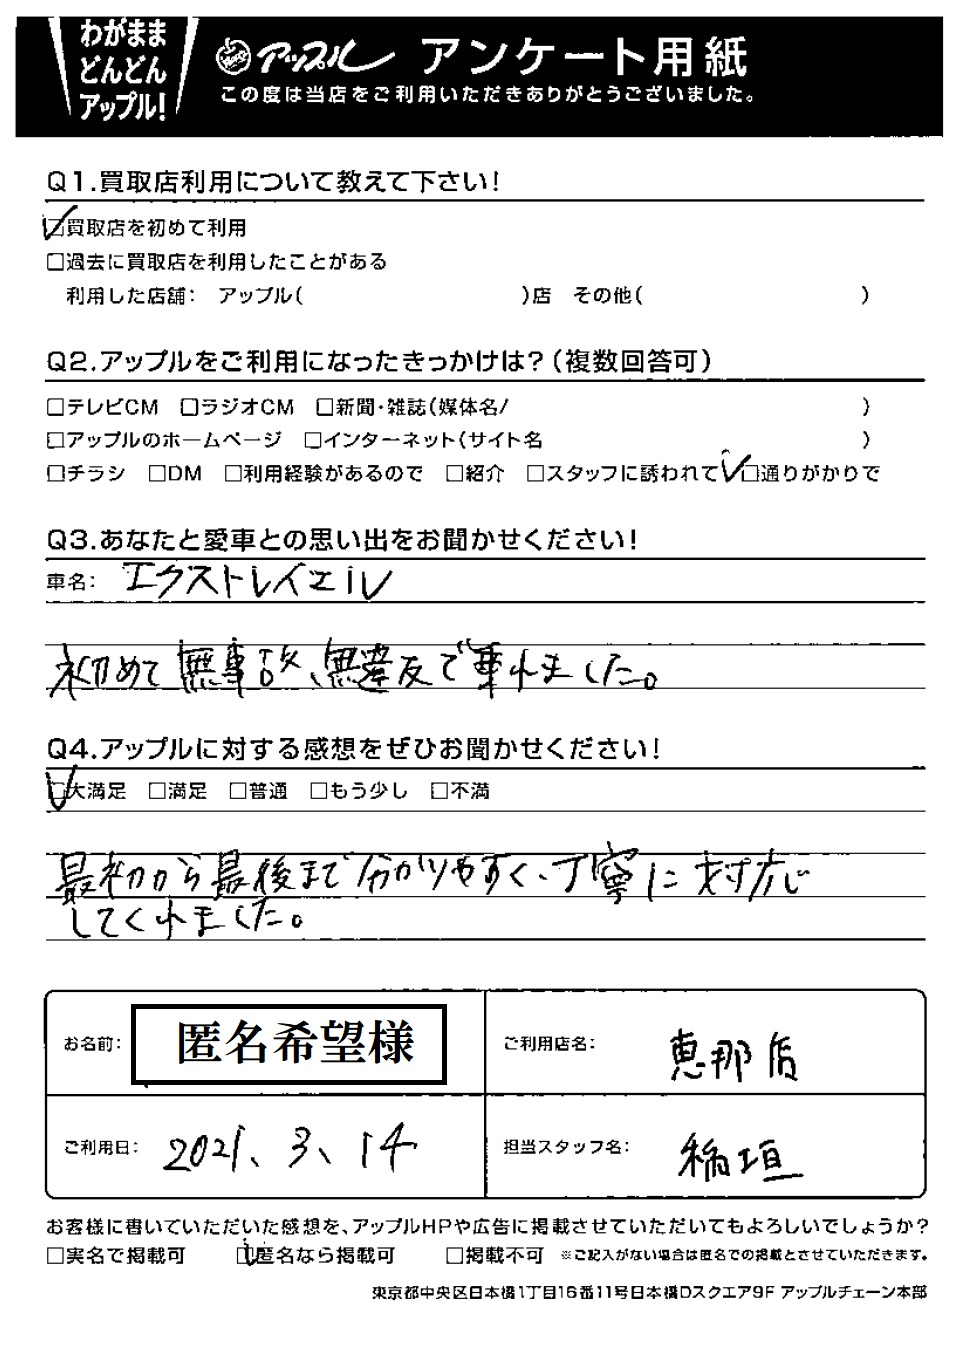 わがまま
どんどん
アップル!
アップル アンケート用紙
この度は当店をご利用いただきありがとうございました。
Q1.買取店利用について教えて下さい!
☑買取店を初めて利用
□過去に買取店を利用したことがある
利用した店舗: アップル( )店 その他( )
Q2.アップルをご利用になったきっかけは?(複数回答可)
□テレビCM □ラジオCM □新聞・雑誌(媒体名/ )
□アップルのホームページ □インターネット(サイト名 )
□チラシ □DM □利用経験があるので □紹介 □スタッフに誘われて ☑通りがかりで
Q3.あなたと愛車との思い出をお聞かせください!
車名: エクストレイエル
初めて無事故、無違反で車れました。
Q4.アップルに対する感想をぜひお聞かせください!
☑大満足 □満足 □普通 □もう少し □不満
最初から最後まで分かりやすく、丁寧に対応
してくれました。
お名前: 匿名希望様
ご利用店名: 恵那店
ご利用日: 2021、3、14
担当スタッフ名: 稲垣
お客様に書いていただいた感想を、アップルHPや広告に掲載させていただいてもよろしいでしょうか?
□実名で掲載可 ☑匿名なら掲載可 □掲載不可 ※ご記入がない場合は匿名での掲載とさせていただきます。
東京都中央区日本橋1丁目16番11号日本橋Dスクエア9F アップルチェーン本部